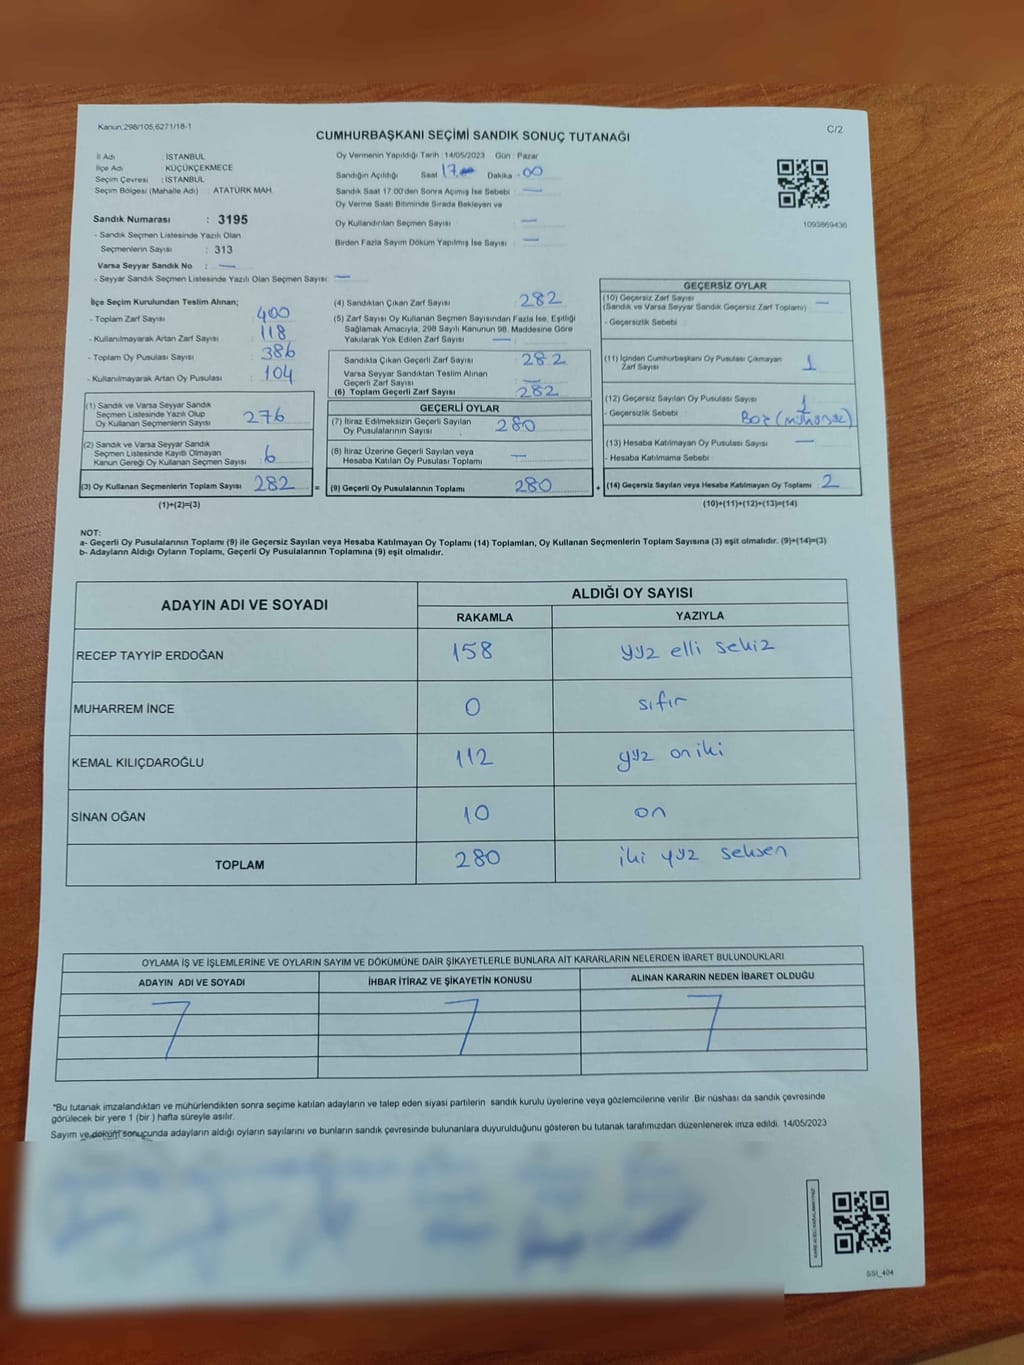 Kanun;298/105,6271/18-1
C/2
CUMHURBAŞKANI SEÇİMİ SANDIK SONUÇ TUTANAĞI
İl Adı : İSTANBUL
İlçe Adı : KÜÇÜKÇEKMECE
Seçim Çevresi : İSTANBUL
Seçim Bölgesi (Mahalle Adı) : ATATÜRK MAH.
Oy Vermenin Yapıldığı Tarih : 14/05/2023 Gün : Pazar
Sandığın Açıldığı Saat 17 Dakika : 00
Sandık Saat 17:00'den Sonra Açımış İse Sebebi : —
Oy Verme Saati Bitiminde Sırada Bekleyen ve
Oy Kullandırılan Seçmen Sayısı : —
Birden Fazla Sayım Döküm Yapılmış İse Sayısı : —
1093869436
Sandık Numarası : 3195
- Sandık Seçmen Listesinde Yazılı Olan
Seçmenlerin Sayısı : 313
Varsa Seyyar Sandık No : —
- Seyyar Sandık Seçmen Listesinde Yazılı Olan Seçmen Sayısı : —
İlçe Seçim Kurulundan Teslim Alınan;
- Toplam Zarf Sayısı : 400
- Kullanılmayarak Artan Zarf Sayısı : 118
- Toplam Oy Pusulası Sayısı : 386
- Kullanılmayarak Artan Oy Pusulası : 104
(1) Sandık ve Varsa Seyyar Sandık
Seçmen Listesinde Yazılı Olup
Oy Kullanan Seçmenlerin Sayısı : 276
(2) Sandık ve Varsa Seyyar Sandık
Seçmen Listesinde Kayıtlı Olmayan
Kanun Gereği Oy Kullanan Seçmen Sayısı : 6
(3) Oy Kullanan Seçmenlerin Toplam Sayısı : 282 =
(1)+(2)=(3)
(4) Sandıktan Çıkan Zarf Sayısı : 282
(5) Zarf Sayısı Oy Kullanan Seçmen Sayısından Fazla İse, Eşitliği
Sağlamak Amacıyla, 298 Sayılı Kanunun 98. Maddesine Göre
Yakılarak Yok Edilen Zarf Sayısı : —
Sandıkta Çıkan Geçerli Zarf Sayısı : 282
Varsa Seyyar Sandıktan Teslim Alınan
Geçerli Zarf Sayısı : —
(6) Toplam Geçerli Zarf Sayısı : 282
GEÇERLİ OYLAR
(7) İtiraz Edilmeksizin Geçerli Sayılan
Oy Pusulalarının Sayısı : 280
(8) İtiraz Üzerine Geçerli Sayılan veya
Hesaba Katılan Oy Pusulası Toplamı : —
(9) Geçerli Oy Pusulalarının Toplamı : 280 +
GEÇERSİZ OYLAR
(10) Geçersiz Zarf Sayısı : —
(Sandık ve Varsa Seyyar Sandık Geçersiz Zarf Toplamı)
- Geçersizlik Sebebi :
(11) İçinden Cumhurbaşkanı Oy Pusulası Çıkmayan
Zarf Sayısı : 1
(12) Geçersiz Sayılan Oy Pusulası Sayısı : 1
- Geçersizlik Sebebi : Boş (mühürsüz)
(13) Hesaba Katılmayan Oy Pusulası Sayısı : —
- Hesaba Katılmama Sebebi :
(14) Geçersiz Sayılan veya Hesaba Katılmayan Oy Toplamı : 2
(10)+(11)+(12)+(13)=(14)
NOT:
a- Geçerli Oy Pusulalarının Toplamı (9) ile Geçersiz Sayılan veya Hesaba Katılmayan Oy Toplamı (14) Toplamları, Oy Kullanan Seçmenlerin Toplam Sayısına (3) eşit olmalıdır. (9)+(14)=(3)
b- Adayların Aldığı Oyların Toplamı, Geçerli Oy Pusulalarının Toplamına (9) eşit olmalıdır.
ADAYIN ADI VE SOYADI
ALDIĞI OY SAYISI
RAKAMLA YAZIYLA
RECEP TAYYİP ERDOĞAN 158 yüz elli sekiz
MUHARREM İNCE 0 sıfır
KEMAL KILIÇDAROĞLU 112 yüz oniki
SİNAN OĞAN 10 on
TOPLAM 280 iki yüz seksen
OYLAMA İŞ VE İŞLEMLERİNE VE OYLARIN SAYIM VE DÖKÜMÜNE DAİR ŞİKAYETLERLE BUNLARA AİT KARARLARIN NELERDEN İBARET BULUNDUKLARI
ADAYIN ADI VE SOYADI İHBAR İTİRAZ VE ŞİKAYETİN KONUSU ALINAN KARARIN NEDEN İBARET OLDUĞU
*Bu tutanak imzalandıktan ve mühürlendikten sonra seçime katılan adayların ve talep eden siyasi partilerin sandık kurulu üyelerine veya gözlemcilerine verilir .Bir nüshası da sandık çevresinde
görülecek bir yere 1 (bir ) hafta süreyle asılır.
Sayım ve döküm sonucunda adayların aldığı oyların sayılarını ve bunların sandık çevresinde bulunanlara duyurulduğunu gösteren bu tutanak tarafımızdan düzenlenerek imza edildi. 14/05/2023
SSI_404